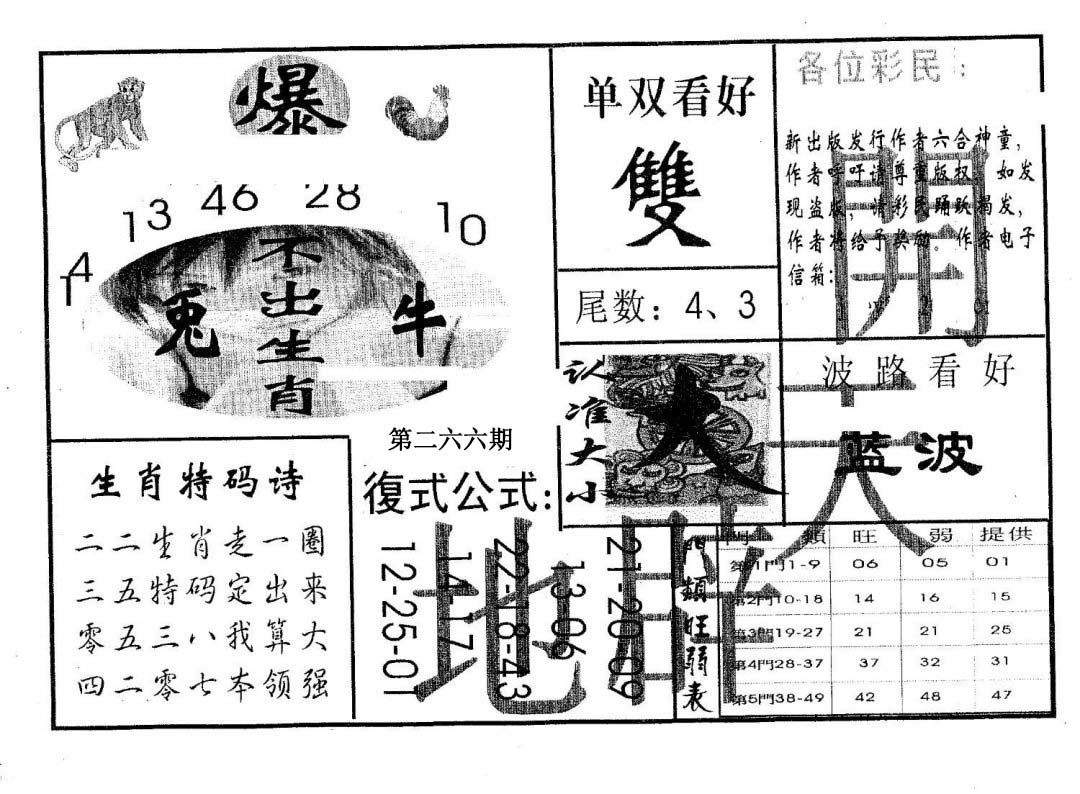 爆
14 13 46 28 10
不出生肖
兔 牛
单双看好
雙
尾数: 4、3
各位彩民:
新出版发行作者六合神童,
作者呼吁请尊重版权 如发
现盗版,请彩民踊跃揭发,
作者将给予奖励。作者电子
信箱:
認准大小
大
波路看好
蓝波
生肖特码诗
二二生肖走一圈
三五特码定出来
零五三八我算大
四二零七本领强
第二六六期
復式公式:
12-25-01
14-17
22-18-43
13-06
21-20-09
門類旺弱表
門類 旺 弱 提供
第1門1-9 06 05 01
第2門10-18 14 16 15
第3門19-27 21 21 25
第4門28-37 37 32 31
第5門38-49 42 48 47
開天
地